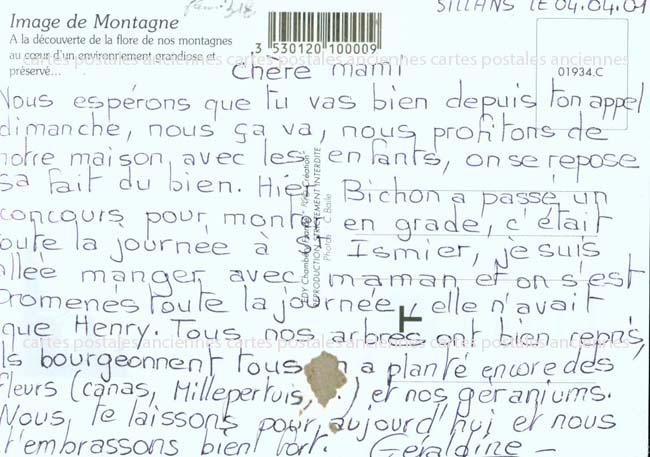 SILLANS LE 04.04.01
Image de Montagne
A la découverte de la flore de nos montagnes
au cœur d'un environnement grandiose et
préservé...
3 530120 100009
01934.C
cartes postales anciennes cartes postales anciennes cartes postales anciennes
Chère mami
Nous espérons que tu vas bien depuis ton appel
dimanche, nous ça va, nous profitons de
notre maison, avec les enfants, on se repose
sa fait du bien. Hier Bichon a passé un
concours pour monter en grade, c'était
toute la journée à St Ismier, je suis
allée manger avec maman et on s'est
promenés toute la journée, elle n'avait
que Henry. Tous nos arbres ont bien repris,
cartes postales anciennes cartes postales anciennes cartes postales anciennes
Ils bourgeonnent tous a planté encore des
fleurs (canas, Millepertuis, ..) et nos géraniums.
Nous, te laissons pour aujourd'hui et nous
t'embrassons bien fort. Géraldine -
EDY Chambéry
REPRODUCTION STRICTEMENT INTERDITE
Photos C. Baile